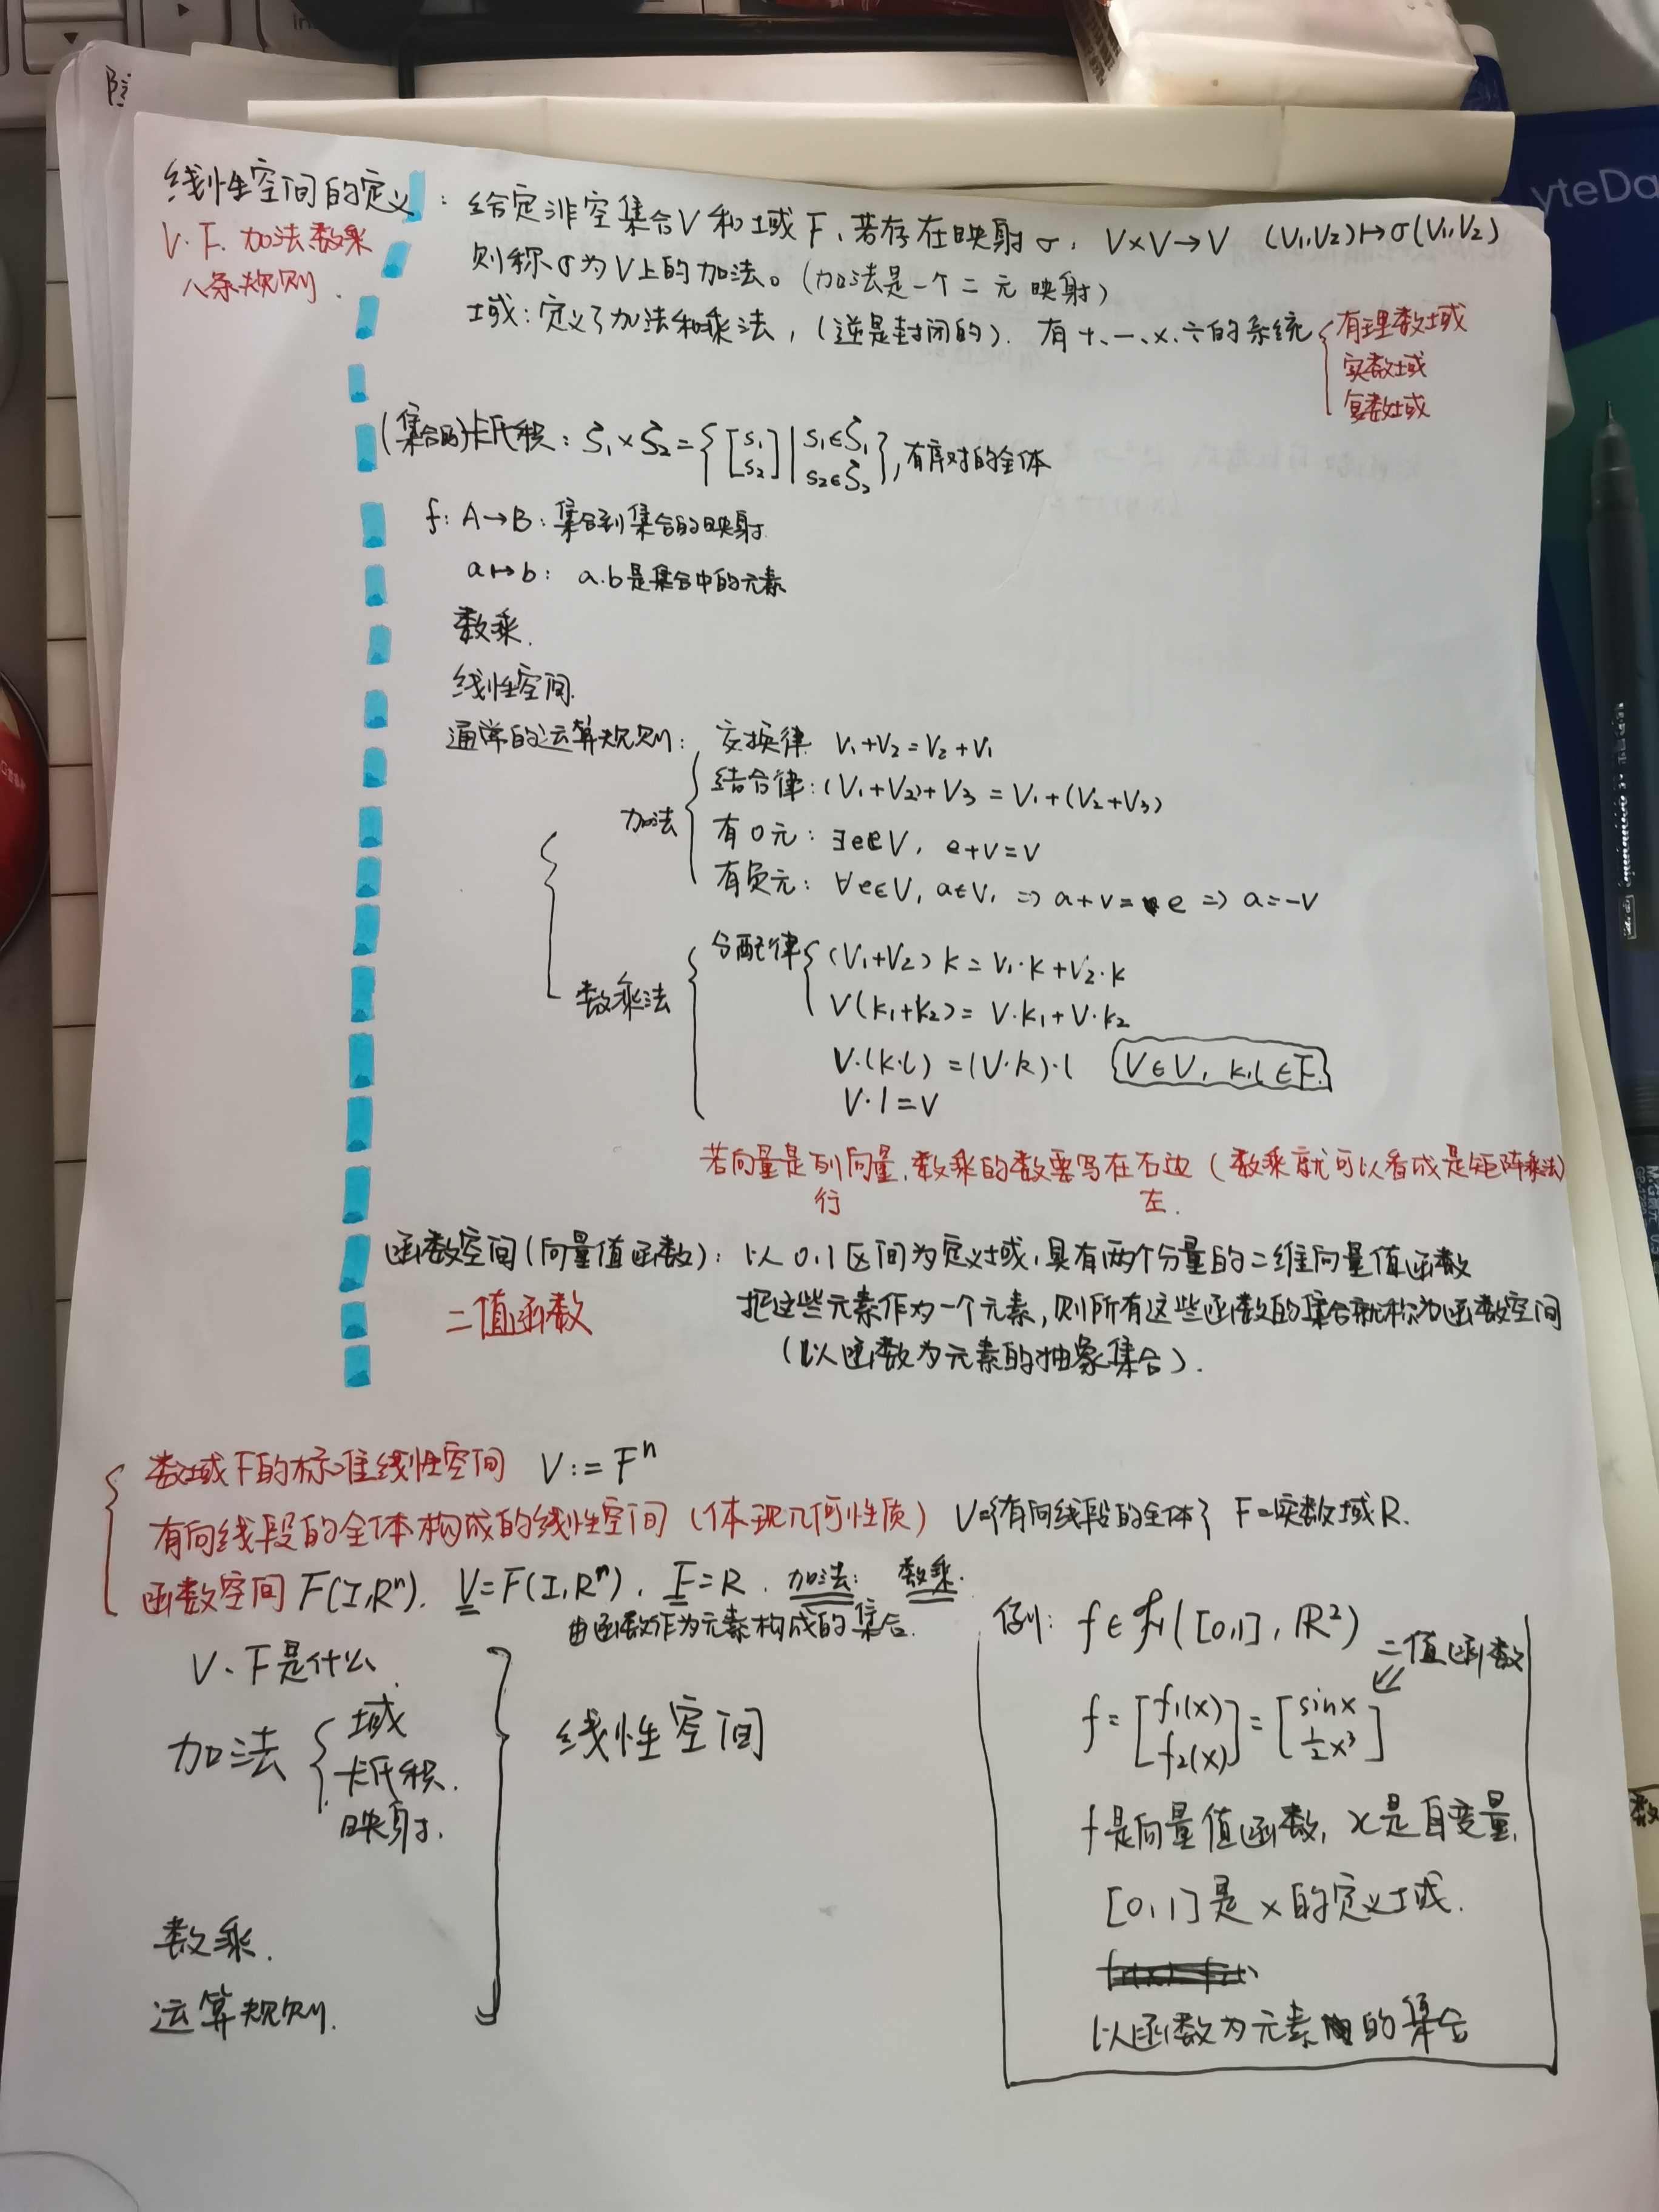 线性空间的定义：给定非空集合V和域F，若存在映射σ，V×V→V (V₁,V₂)↦σ(V₁,V₂)
V.F. 加法数乘
八条规则.
则称σ为V上的加法。(加法是一个二元映射)
域：定义了加法和乘法，(逆是封闭的). 有+、-、×、÷的系统
有理数域
实数域
复数域
(集合的)卡氏积：S₁×S₂={[s₁ s₂]|s₁∈S₁ s₂∈S₂}，有序对的全体
f: A→B：集合到集合的映射.
a↦b： a.b是集合中的元素
数乘.
线性空间.
通常的运算规则：
加法
交换律 V₁+V₂=V₂+V₁
结合律：(V₁+V₂)+V₃=V₁+(V₂+V₃)
有0元：∃e∈V, e+V=V
有负元：∀e∈V, a∈V, ⇒ a+V=e ⇒ a=-V
数乘法
分配律 (V₁+V₂)k=V₁·k+V₂·k
V(k₁+k₂)=V·k₁+V·k₂
V·(k·l)=(V·k)·l V∈V, k,l∈F.
V·1=V
若向量是列向量,数乘的数要写在右边(数乘就可以看成是矩阵乘法)
行 左.
函数空间(向量值函数)：以0,1区间为定义域,具有两个分量的二维向量值函数
二值函数
把这些元素作为一个元素,则所有这些函数的集合就称为函数空间
(以函数为元素的抽象集合).
数域F的标准线性空间 V:=Fⁿ
有向线段的全体构成的线性空间(体现几何性质) V={有向线段的全体} F=实数域R.
函数空间F(I,Rⁿ). V=F(I,Rⁿ). F=R. 加法: 数乘.
由函数作为元素构成的集合.
V、F是什么
加法
域
卡氏积.
映射.
数乘.
运算规则.
线性空间
例: f∈F([0,1],R²)
二值函数
f=[f₁(x) f₂(x)]=[sinx ½x³]
f是向量值函数, x是自变量,
[0,1]是x的定义域.
以函数为元素的集合
yteDa